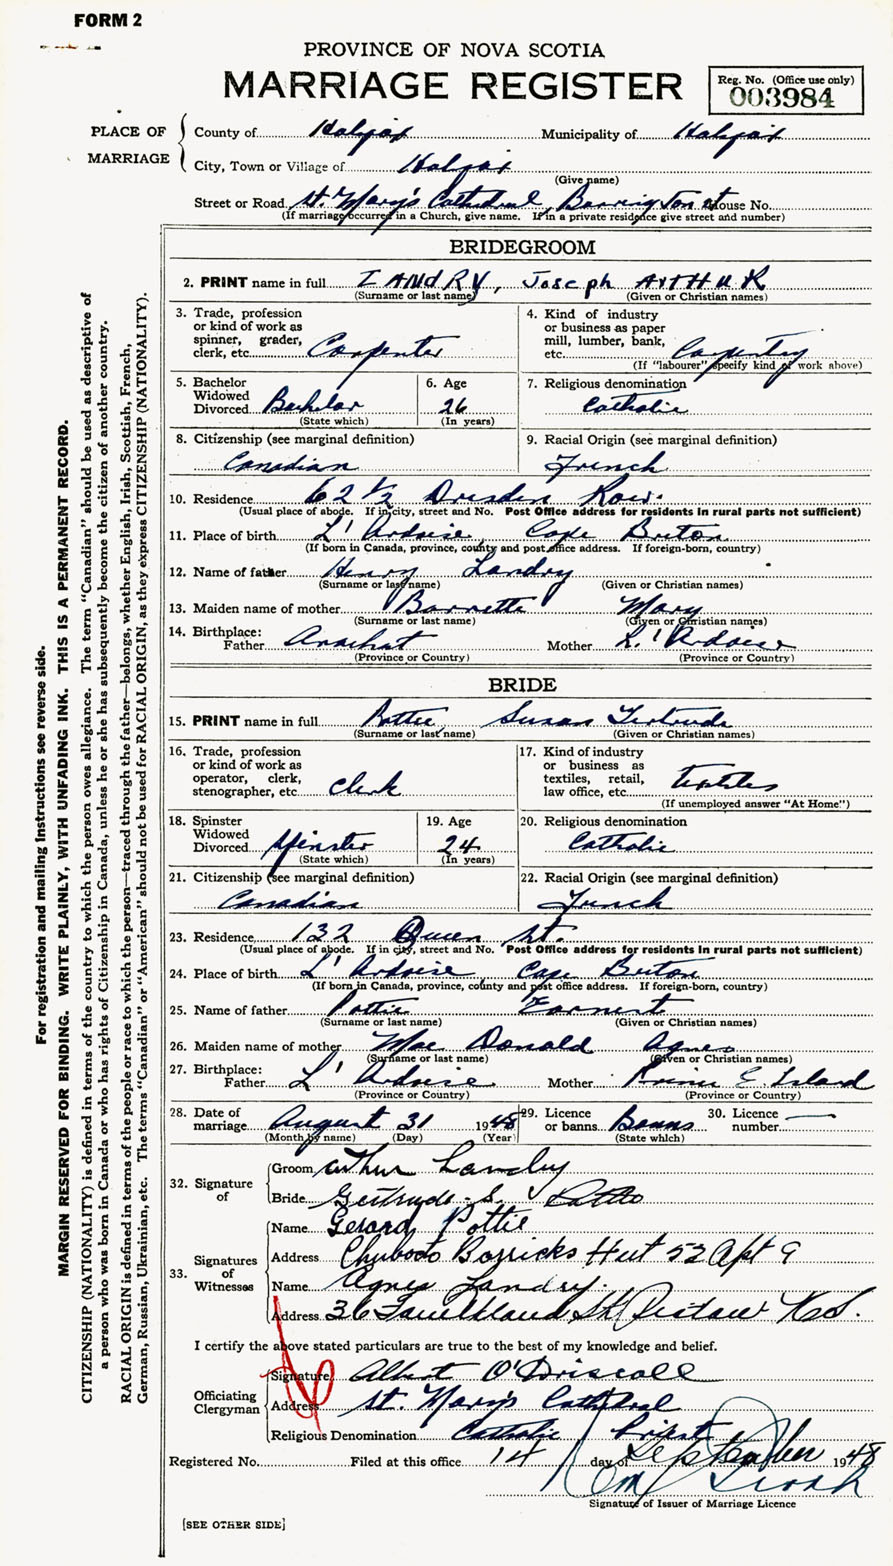 FORM 2
PROVINCE OF NOVA SCOTIA
MARRIAGE REGISTER
Reg. No. (Office use only)
003984
PLACE OF MARRIAGE
County of Halifax Municipality of Halifax
City, Town or Village of Halifax
(Give name)
Street or Road St. Mary's Cathedral Barrington St House No.
(If marriage occurred in a Church, give name. If in a private residence give street and number)
BRIDEGROOM
2. PRINT name in full LANDRY, Joseph ARTHUR
(Surname or last name) (Given or Christian names)
3. Trade, profession or kind of work as spinner, grader, clerk, etc. Carpenter
4. Kind of industry or business as paper mill, lumber, bank, etc. Carpentry
(If "labourer" specify kind of work above)
5. Bachelor Widowed Divorced Bachelor
(State which)
6. Age 26
(In years)
7. Religious denomination Catholic
8. Citizenship (see marginal definition) Canadian
9. Racial Origin (see marginal definition) French
10. Residence 62 1/2 Dresden Row.
(Usual place of abode. If in city, street and No. Post Office address for residents in rural parts not sufficient)
11. Place of birth L'Ardoise, Cape Breton
(If born in Canada, province, county and post office address. If foreign-born, country)
12. Name of father Henry Landry
(Surname or last name) (Given or Christian names)
13. Maiden name of mother Barnette Mary
(Surname or last name) (Given or Christian names)
14. Birthplace: Father Arachat Mother L'Ardoise
(Province or Country) (Province or Country)
BRIDE
15. PRINT name in full Pottie, Susan Gertrude
(Surname or last name) (Given or Christian names)
16. Trade, profession or kind of work as operator, clerk, stenographer, etc. Clerk
17. Kind of industry or business as textiles, retail, law office, etc. textiles
(If unemployed answer "At Home")
18. Spinster Widowed Divorced Spinster
(State which)
19. Age 24
(In years)
20. Religious denomination Catholic
21. Citizenship (see marginal definition) Canadian
22. Racial Origin (see marginal definition) French
23. Residence 132 Queen St.
(Usual place of abode. If in city, street and No. Post Office address for residents in rural parts not sufficient)
24. Place of birth L'Ardoise, Cape Breton
(If born in Canada, province, county and post office address. If foreign-born, country)
25. Name of father Pottie Earnest
(Surname or last name) (Given or Christian names)
26. Maiden name of mother Mac Donald Agnes
(Surname or last name) (Given or Christian names)
27. Birthplace: Father L'Ardoise Mother Prince E. Island
(Province or Country) (Province or Country)
28. Date of marriage August 31 1948
(Month by name) (Day) (Year)
29. Licence or banns Banns
(State which)
30. Licence number —
32. Signature of
Groom Arthur Landry
Bride Gertrude S. Pottie
33. Signatures of Witnesses
Name Gerard Pottie
Address Chubocto Barricks Hut 52 Apt 9
Name Agnes Landry.
Address 36 Faulkland St N.S.
I certify the above stated particulars are true to the best of my knowledge and belief.
Officiating Clergyman
Signature Albert O'Driscoll
Address St. Mary's Cathedral
Religious Denomination Catholic Priest
Registered No. Filed at this office 14 day of September 1948
Signature of Issuer of Marriage Licence
[SEE OTHER SIDE]
For registration and mailing instructions see reverse side.
MARGIN RESERVED FOR BINDING. WRITE PLAINLY, WITH UNFADING INK. THIS IS A PERMANENT RECORD.
CITIZENSHIP (NATIONALITY) is defined in terms of the country to which the person owes allegiance. The term "Canadian" should be used as descriptive of
a person who was born in Canada or who has rights of Citizenship in Canada, unless he or she has subsequently become the citizen of another country.
RACIAL ORIGIN is defined in terms of the people or race to which the person—traced through the father—belongs, whether English, Irish, Scottish, French,
German, Russian, Ukrainian, etc. The terms "Canadian" or "American" should not be used for RACIAL ORIGIN, as they express CITIZENSHIP (NATIONALITY).